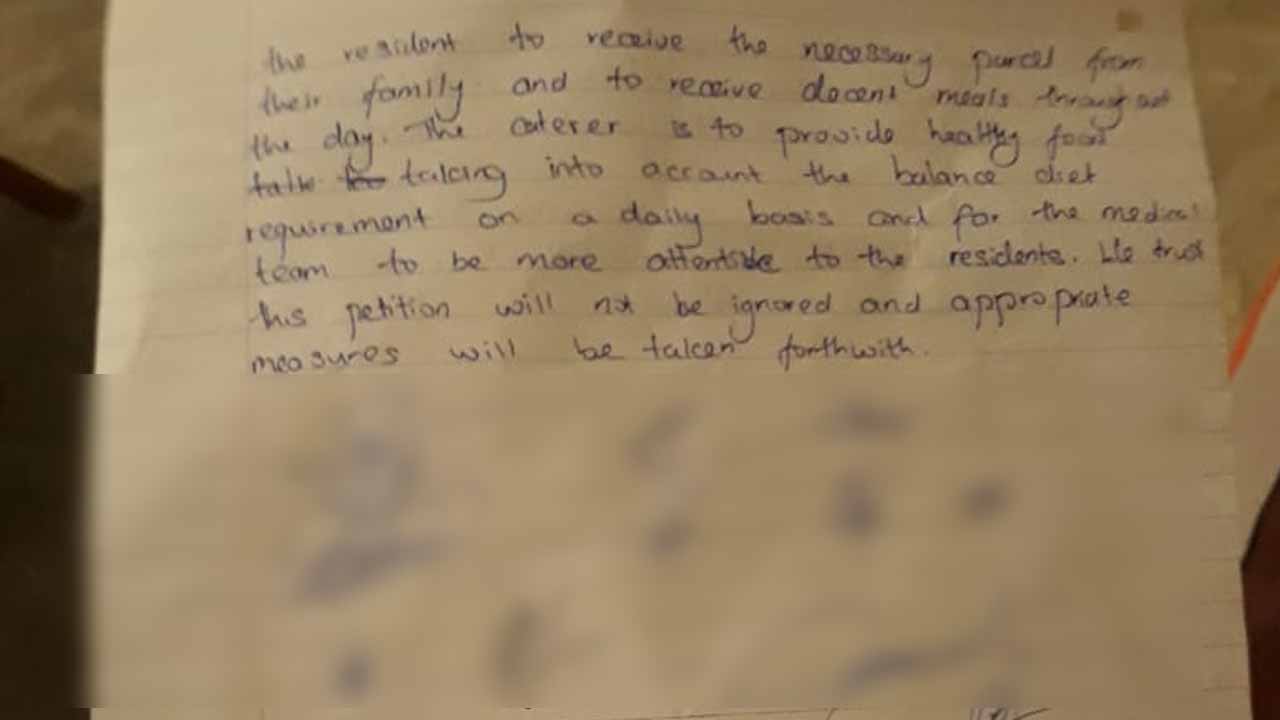 the resident to receive the necessary parcel from
their family and to receive decent meals throughout
the day. The caterer is to provide healthy food
taking into account the balance diet
requirement on a daily basis and for the medical
team to be more attentive to the residents. We trust
this petition will not be ignored and appropriate
measures will be taken forthwith.